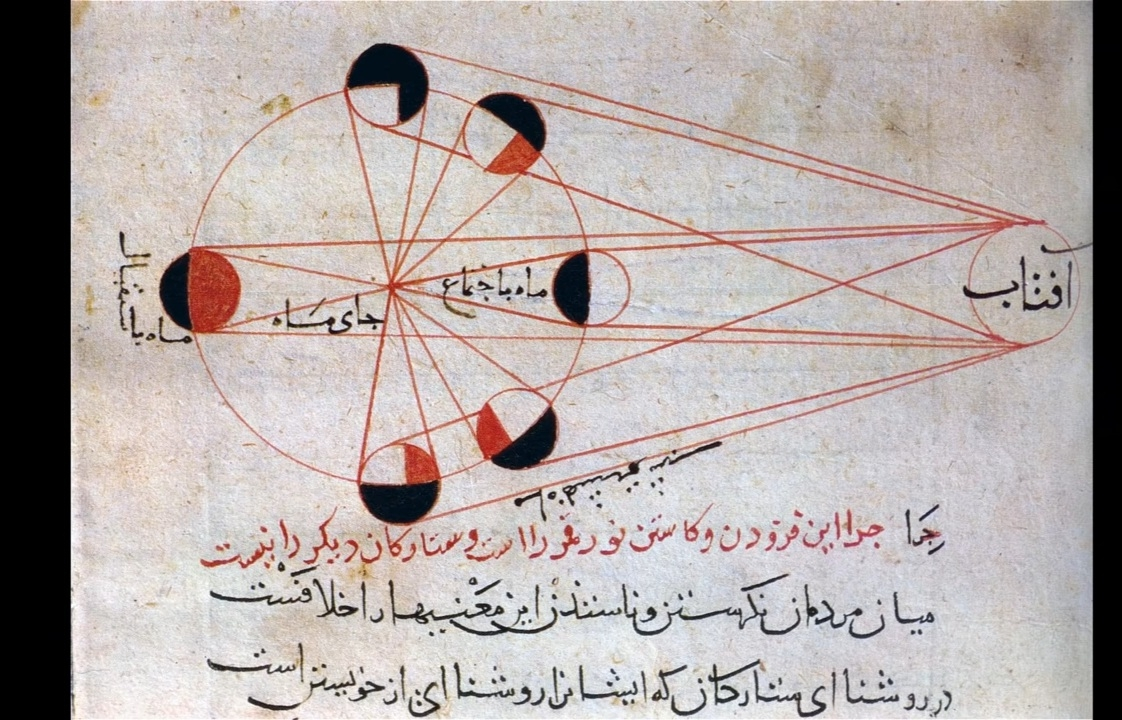 افتاب
ماه باجتماع
جای ماه
ماه باستقبال
چرا این فزودن و کاستن نور قمر را است و ستارکان دیکر را نیست
میان مردمان نکرستن و ناسنندن این معنیها را خلافست
در روشنا ای ستارکان که ایشانرا روشنا ای از خویشتن است